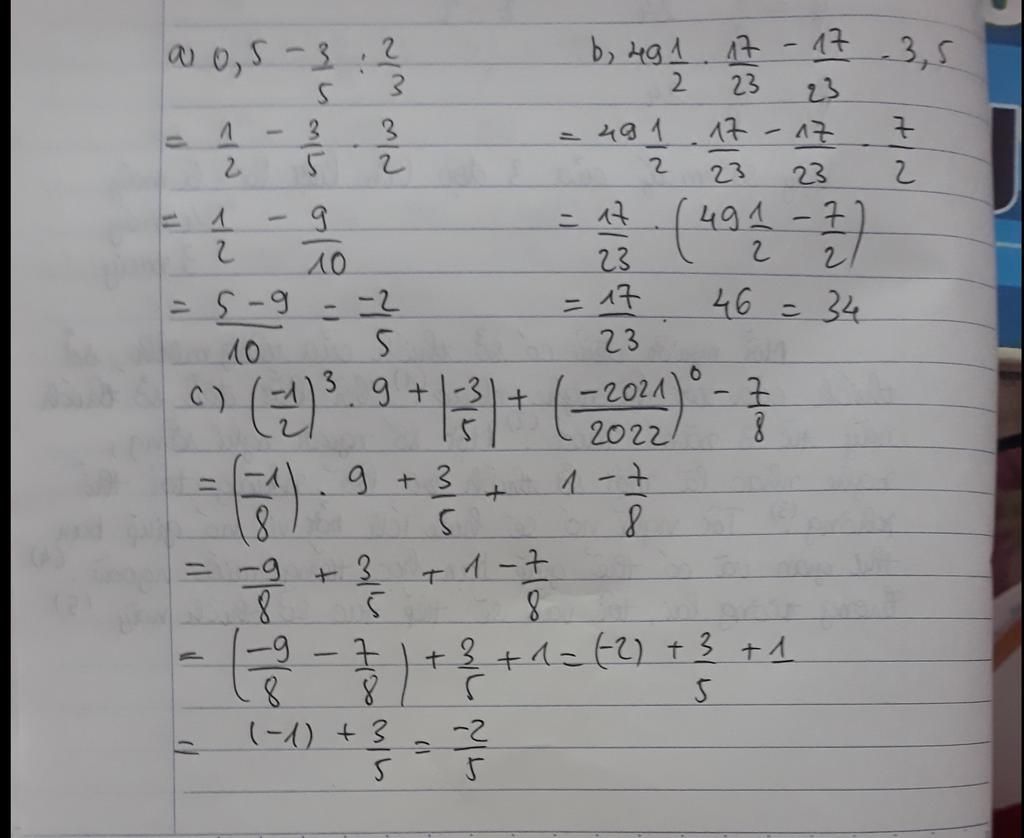 a) 0,5 - 3/5 : 2/3
= 1/2 - 3/5 . 3/2
= 1/2 - 9/10
= (5 - 9)/10 = -2/5
b, 49 1/2 . 17/23 - 17/23 . 3,5
= 49 1/2 . 17/23 - 17/23 . 7/2
= 17/23 . (49 1/2 - 7/2)
= 17/23 . 46 = 34
c) (-1/2)³ . 9 + |-3/5| + (-2021/2022)⁰ - 7/8
= (-1/8) . 9 + 3/5 + 1 - 7/8
= -9/8 + 3/5 + 1 - 7/8
= (-9/8 - 7/8) + 3/5 + 1 = (-2) + 3/5 + 1
= (-1) + 3/5 = -2/5